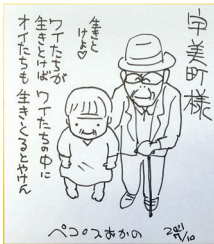 宇美町様
生きと
けよ♡
ワイたちが
生きとけば
ワイたちの中に
オイたちも
生きくるとやけん
ペコロスおかの
2021
9/10